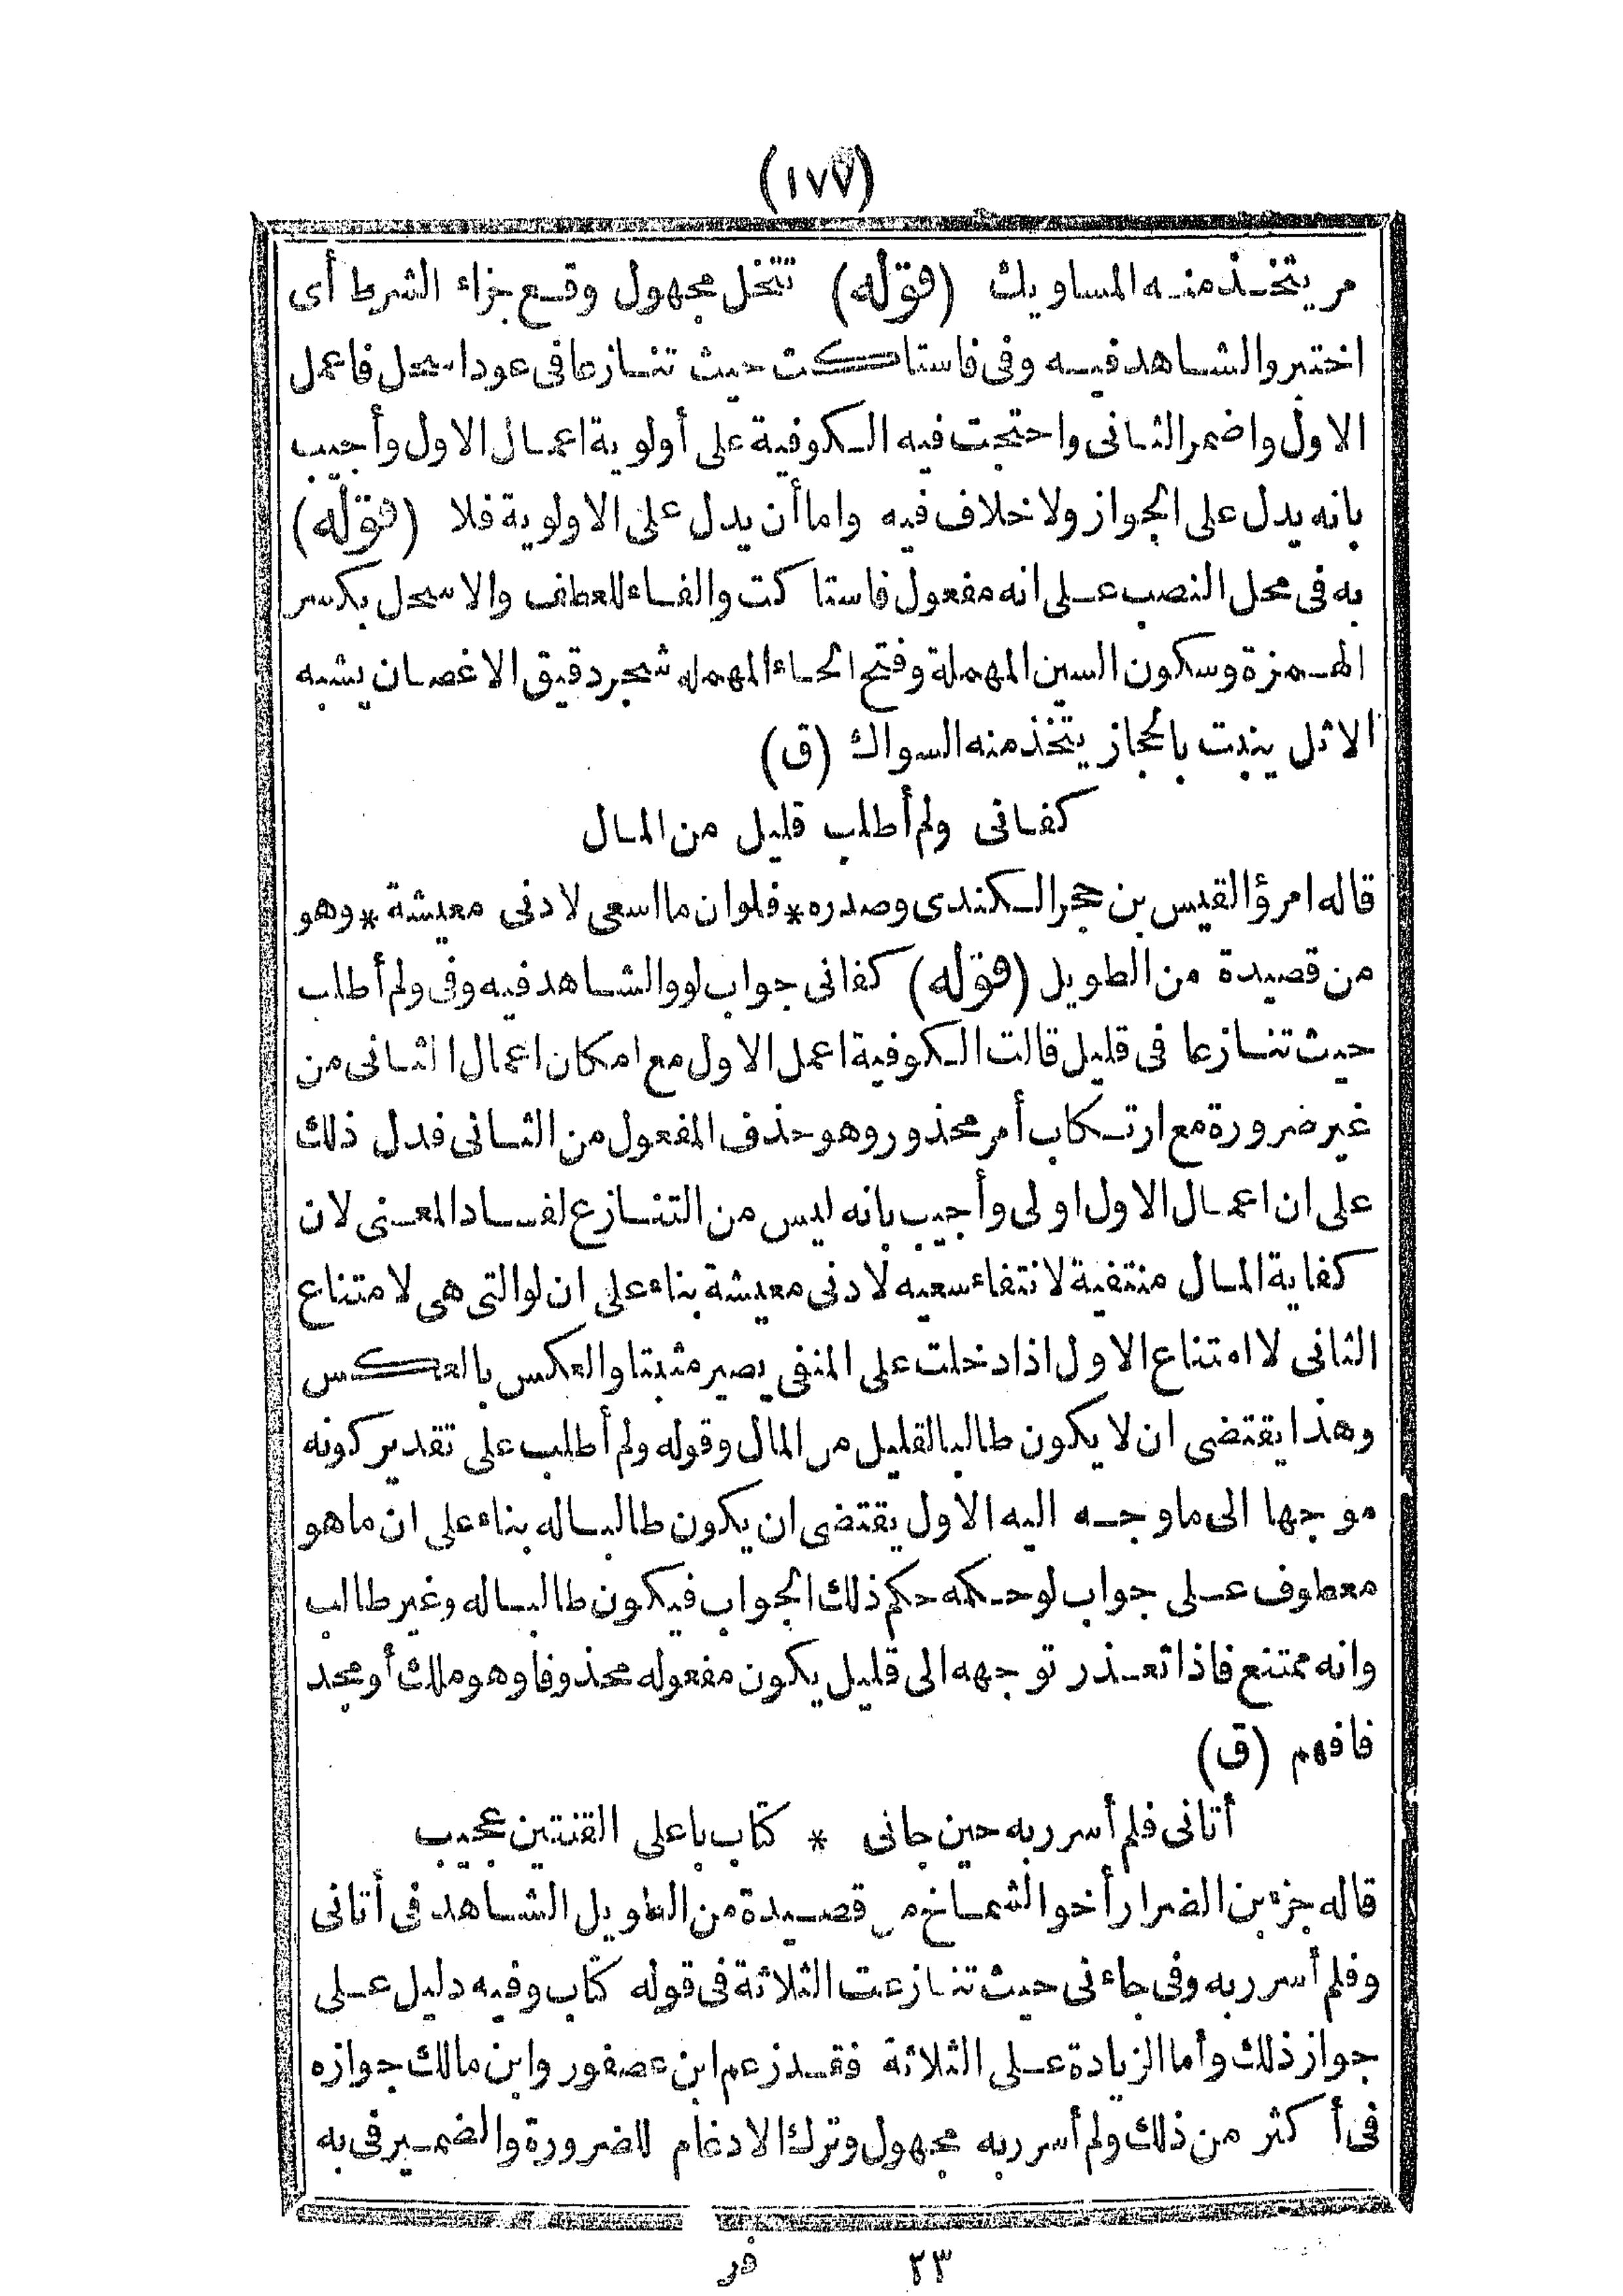 (١٧٧)
مر يتخذ منه المساويك (قوله) تنخل مجهول وقع جزاء الشرط أى
اختبر والشاهد فيه وفى فاستاكت حيث تنازعا فى عود اسحل فاعمل
الاول واضمر الثانى واحتجت فيه الكوفية على أولوية اعمال الاول وأجيب
بانه يدل على الجواز ولا خلاف فيه واما أن يدل على الاولوية فلا (قوله)
به فى محل النصب على انه مفعول فاستاكت والفاء للعطف والاسحل بكسر
الهمزة وسكون السين المهملة وفتح الحاء المهمله شجر دقيق الاغصان يشبه
الاثل ينبت بالحجاز يتخذ منه السواك (ق)
كفانى ولم أطلب قليل من المال
قاله امرؤ القيس بن حجر الكندى وصدره * فلو ان ما اسعى لادنى معيشة * وهو
من قصيدة من الطويل (قوله) كفانى جواب لو والشاهد فيه وفى ولم أطلب
حيث تنازعا فى قليل قالت الكوفية اعمل الاول مع امكان اعمال الثانى من
غير ضرورة مع ارتكاب أمر محذور وهو حذف المفعول من الثانى فدل ذلك
على ان اعمال الاول اولى وأجيب بانه ليس من التنازع لفساد المعنى لان
كفاية المال منتفية لانتفاء سعيه لادنى معيشة بناء على ان لو التى هى لامتناع
الثانى لا امتناع الاول اذا دخلت على المنفى يصير مثبتا والعكس بالعكس
وهذا يقتضى ان لا يكون طالبا لقليل من المال وقوله ولم أطلب على تقدير كونه
موجها الى ما وجه اليه الاول يقتضى ان يكون طالبا له بناء على ان ما هو
معطوف على جواب لو حكمه حكم ذلك الجواب فيكون طالبا له وغير طالب
وانه ممتنع فاذا تعذر توجهه الى قليل يكون مفعوله محذوفا وهو ملك أو مجد
فافهم (ق)
أتانى فلم أسرر به حين جانى * كتاب باعلى القنتين عجيب
قاله جزء بن الضرار أخو الشماخ من قصيدة من الطويل الشاهد فى أتانى
وفلم أسرر به وفى جاءنى حيث تنازعت الثلاثة فى قوله كتاب وفيه دليل على
جواز ذلك وأما الزيادة على الثلاثة فقد زعم ابن عصفور وابن مالك جوازه
فى أكثر من ذلك ولم أسرر به مجهول وترك الادغام للضرورة والضمير فى به
٢٣ فر